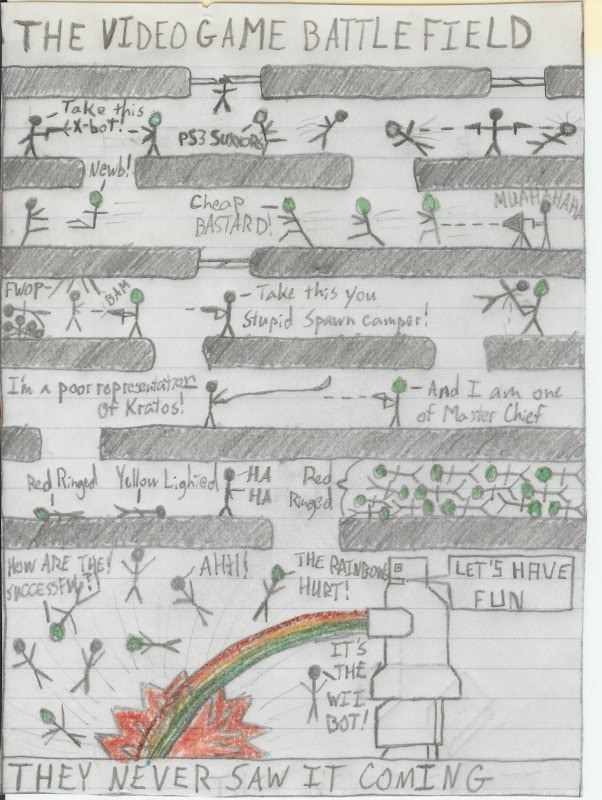 THE VIDEO GAME BATTLEFIELD
Take this
X-bot!
PS3 SUXXORS
Newb!
Cheap
BASTARD!
MUAHAHAHA
FWOP
BAM
Take this you
Stupid Spawn camper!
I'm a poor representation
Of Kratos!
And I am one
of Master Chief
Red Ringed
Yellow Lighted
HA
HA
Red
Ringed
HOW ARE THEY
SUCCESSFUL?!
AHH!
THE RAINBOWS
HURT!
LET'S HAVE
FUN
IT'S
THE
WII
BOT!
THEY NEVER SAW IT COMING